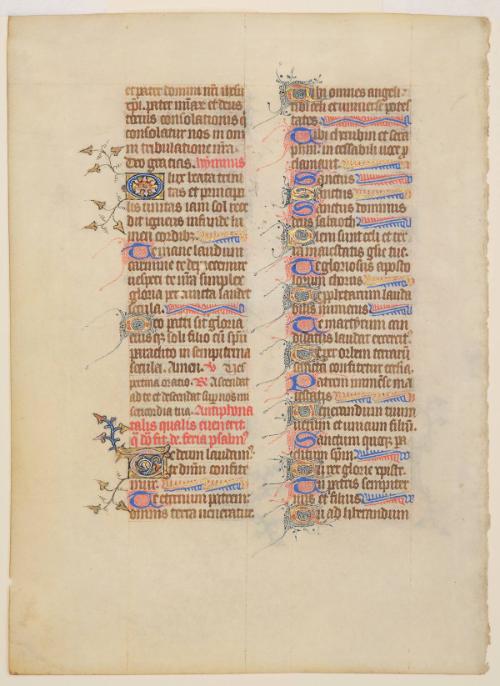 et pater domini nri ihesu
xpi. pater mіarꝝ et deus
tocius consolationis q̄
consolatur nos in omi
ni tribulatione nrā
Deo gracias. hympnus
O lux beata trini
tas et principa
lis unitas iam sol rece
dit igneus infunde lu
men cordibꝫ
Te mane laudum
carmine te dep̄cemur
uesperi te nrā simplex
gloria per cuncta laudet
secula.
Deo patri sit gloria
eiusqꝫ soli filio cū spū
paraclito in sempiterna
secula. Amen. V Ves
pertina oratio. R Ascendat
ad te et descendat sup nos mi
sericordia tua. Antiphona
talis qualis euenerit
de feria psalmꝰ
Te deum laudamꝰ
te dnm confite
mur.
Te eternum patrem
omnis terra ueneratur.
Tibi omnes angeli
tibi celi et uniuerse potes
tates.
Tibi cherubin et sera
phin incessabili uoce p
clamant.
Sanctus
Sanctus
Sanctus dominus
deus sabaoth.
Pleni sunt celi et ter
ra maiestatis glie tue.
Te gloriosus aposto
lorum chorus
Te prophetarum lauda
bilis numerus
Te martyrum can
didatus laudat exercitꝰ.
Te per orbem terrarū
sancta confitetur ecclia.
Patrem inmense ma
iestatis
Venerandum tuum
uerum et unicum filiū.
Sanctum quoqꝫ pa
clitum spm.
Tu rex glorie xpiste.
Tu patris sempiter
nus es filius
Tu ad liberandum